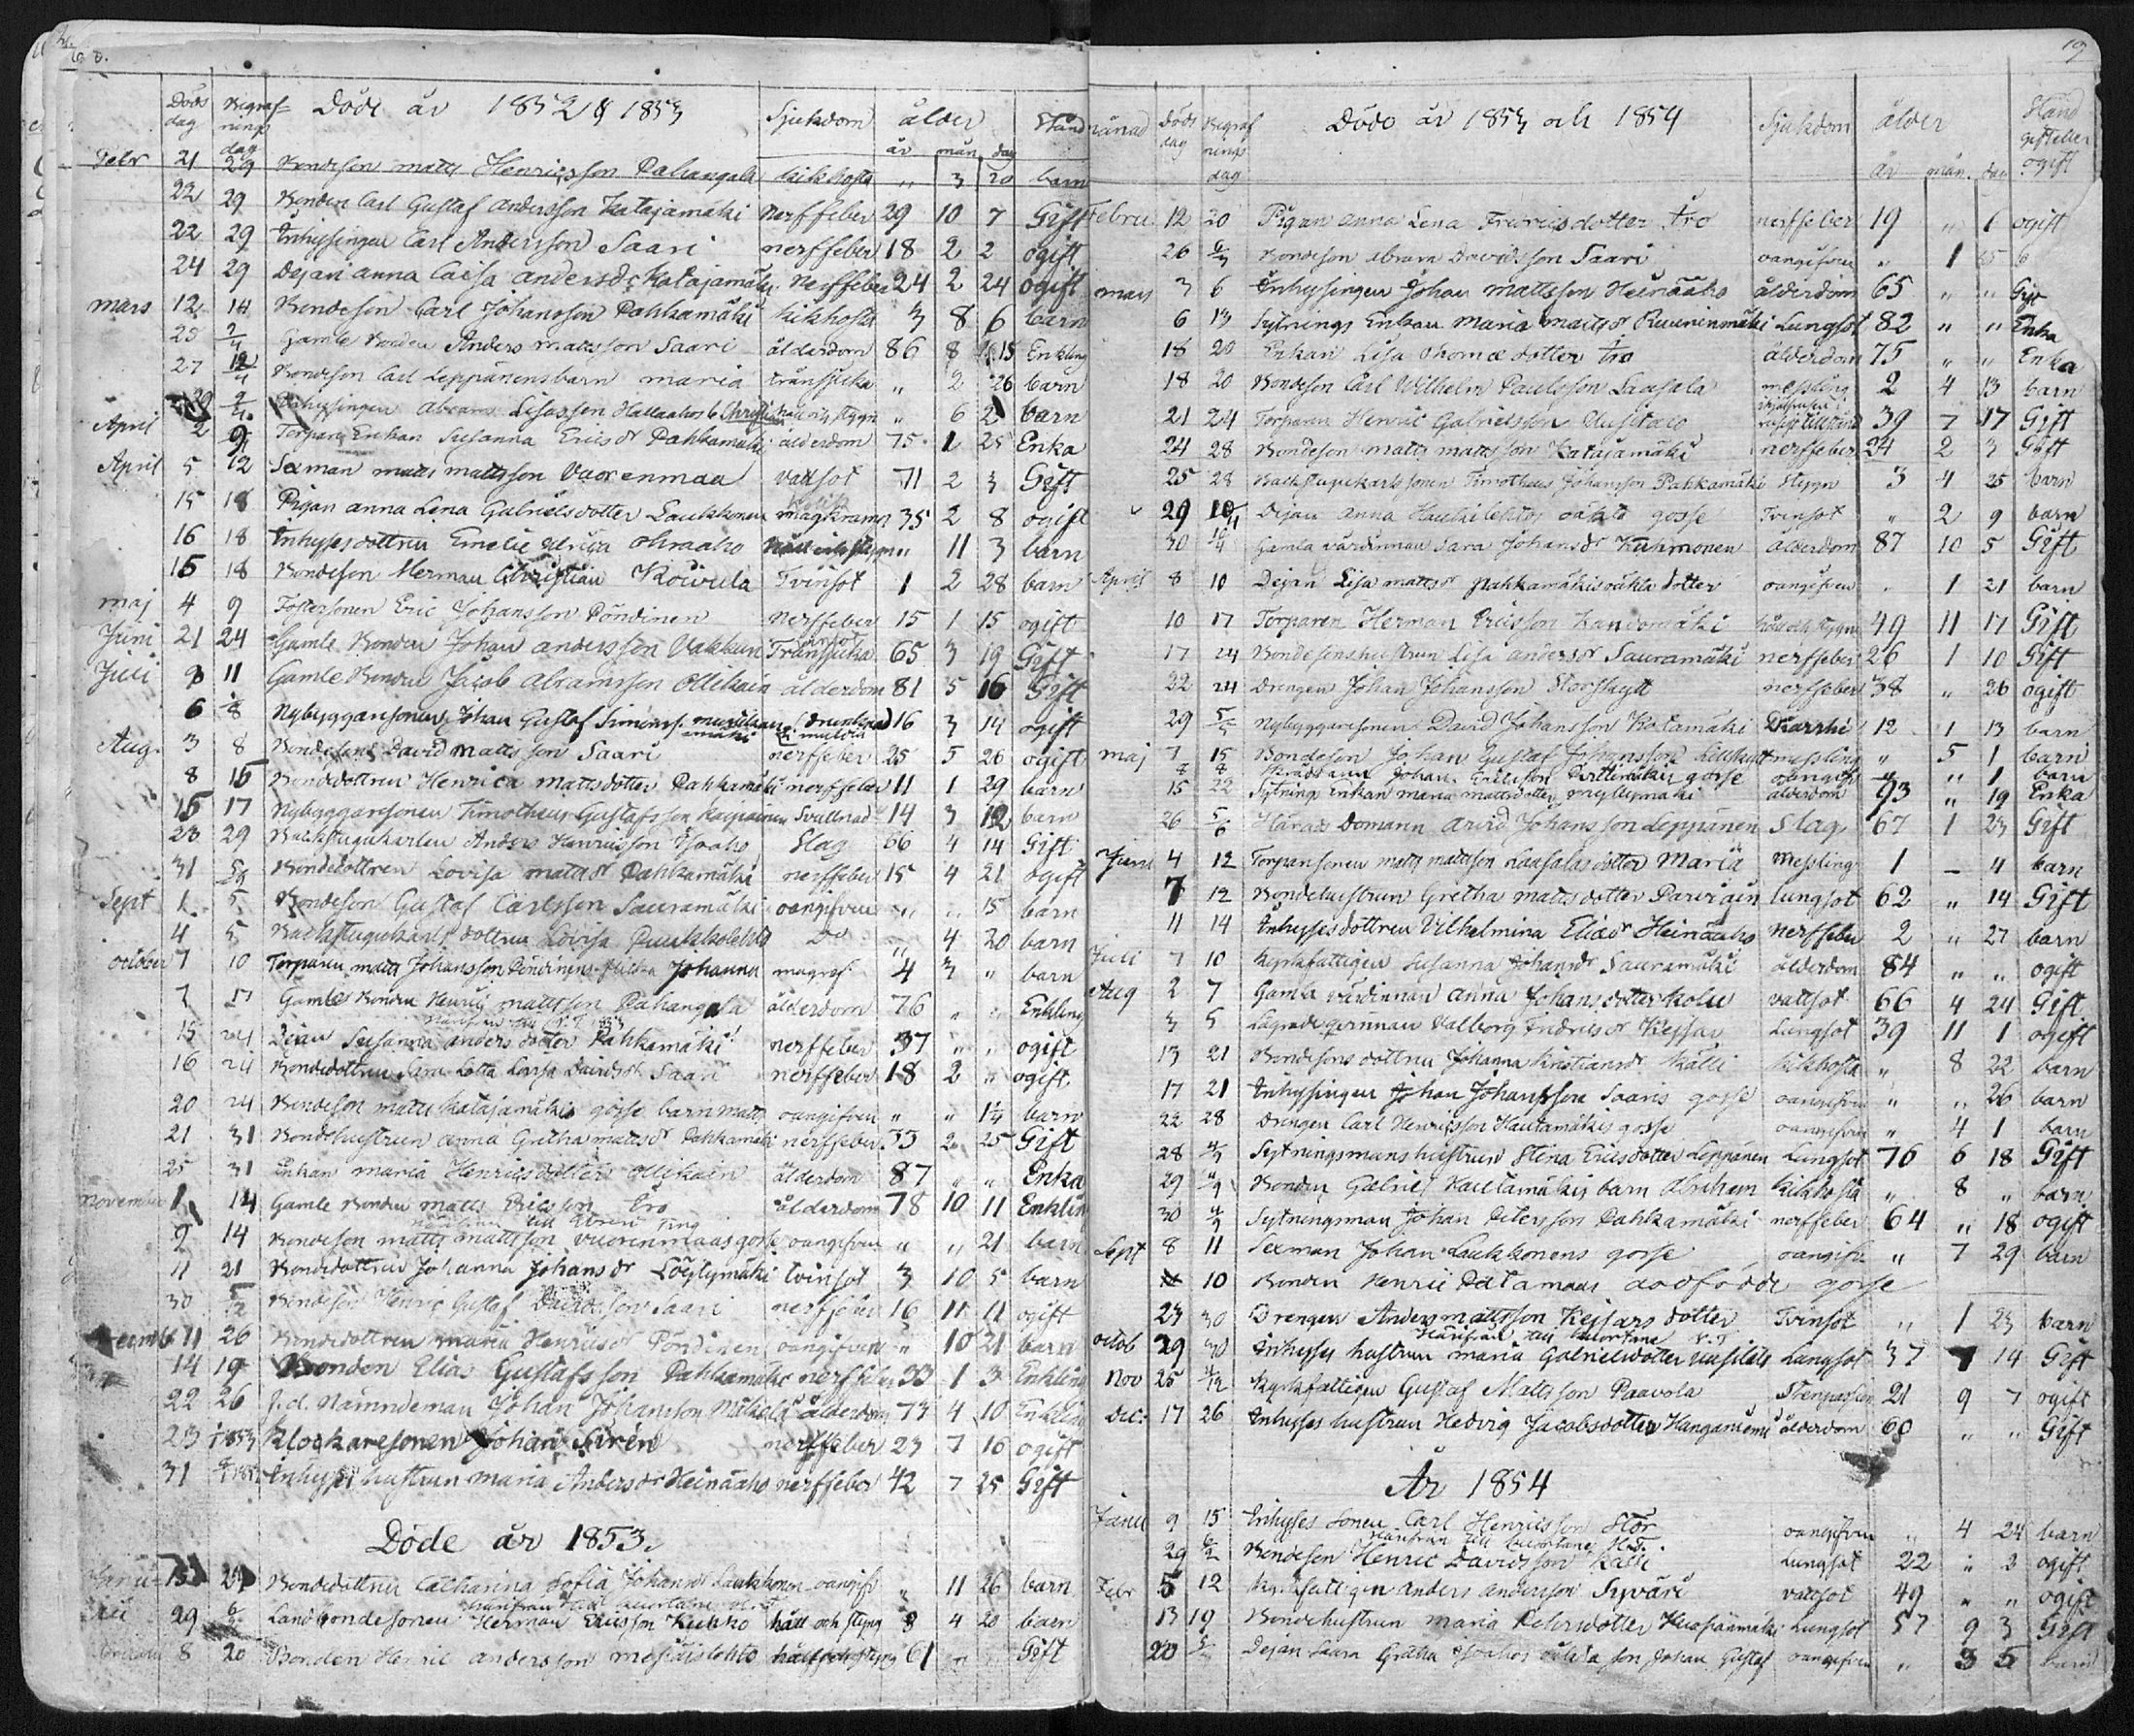 Döde år 1852 & 1853
Döds dag Begrafnings dag Sjukdom ålder år mån dag Stånd
Febr 21 29 Bondeson Matts Henricsson Pahangala kikhosta " 3 20 barn
22 29 Bonden Carl Gustaf Andersson Katajamäki Nerffeber 29 10 7 Gift
22 29 Inhysingen Carl Andersson Saari nerffeber 18 2 2 ogift
24 29 Dejan Anna Caisa Andersdr Katajamäki Nerffeber 24 2 24 ogift
Mars 12 14 Bondeson Carl Johansson Pahkamäki kikhosta 3 8 6 barn
25 2/4 Gamle Bonden Anders Mattsson Saari ålderdom 86 8 15 Enkling
27 12/4 Bondeson Carl Leppänens barn Maria trånsjuka " 2 26 barn
29 2/4 Inhysingen Abrams " 6 2 barn
April 2 9 Torpare Enkan Susanna Ericsdr Pahkamäki ålderdom 75 1 25 Enka
April 5 12 Sexman Matts Mattsson Vaorenmaa vattsot 71 2 3 Gift
15 18 Pigan Anna Lena Gabrielsdotter Laukkonen magkramp 35 2 8 ogift
16 18 Inhysesdottren Emelie Ulrica Ohraaho håll och stygn " 11 3 barn
15 18 Bondeson Herman Christian Koivula Tvinsot 1 2 28 barn
Maj 4 9 Fostersonen Eric Johansson Pöndinen Nerffeber 15 1 15 ogift
Juni 21 24 Gamle Bonden Johan Andersson Vakkuri Trånsjuka 65 3 19 Gift
Juli 9 11 Gamle Bonden Jacob Abramsson Ollikain ålderdom 81 5 16 Gift
6 8 Nybyggaresonen Johan Gustaf Simons. drunknad 16 3 14 ogift
Aug. 3 8 Bondeson David Mattsson Saari nerffeber 25 5 26 ogift
8 15 Bondedottren Henrica Mattsdotter Pahkamäki nerffeber 11 1 29 barn
15 17 Nybyggaresonen Timotheus Gustafsson Svullnad 14 3 12 barn
23 29 Backstugukarlen Anders Henricsson Isoaho Slag 66 4 14 Gift
31 5/9 Bondedottren Lovisa Mattsdr Pahkamäki nerffeber 15 4 21 ogift
Sept 1 5 Bondeson Gustaf Carlsson Sauramäki oangifven " " 15 barn
4 5 Backstugukarls dottren Lovisa Puukkolehto Do " 4 20 barn
October 7 10 Torparen Matts Johansson Pöndinens flicka Johanna magref 4 3 " barn
7 Gamle Bonden Henric Mattsson Pahangala ålderdom 76 " " Enkling
15 24 Dejan Susanna Andersdotter Pahkamäki nerffeber 37 " " ogift
16 24 Bondedottren Sara Lotta Lovisa Davidsdr Saari nerffeber 18 2 " ogift
20 24 Bondeson Matts Katajamäkis gosse barn Matts oangifven " " 14 barn
21 31 Bondehustrun Anna Gretha Mattsdr Pahkamäki nerffeber 35 2 25 Gift
25 31 Enkan Maria Henricsdotter Ollikain ålderdom 87 " " Enka
November 1 14 Gamle Bonden Matts Ericsson Tro ålderdom 78 10 11 Enkling
9 14 Bondeson Matts Mattsson Vuorenmaas gosse oangifven " " 21 barn
11 21 Bondedottren Johanna Johansdr Löytymäki tvinsot 3 10 5 barn
30 5/12 Bondeson Henric Gustaf Davidsson Saari nerffeber 16 11 11 ogift
11 26 Bondedottren Maria Henricsdr Pöndinen oangifven " 10 21 barn
14 19 Bonden Elias Gustafsson Pahkamäki nerffeber 33 1 3 Enkling
22 26 f.d. Nämndeman Johan Johansson Mäkelä ålderdom 73 4 10 Enkling
23 Klockaresonen Johan Sirén nerffeber 23 7 16 ogift
31 Inhyses hustrun Maria Andersdr Heinäaho nerffeber 42 7 25 Gift
Döde år 1853.
Bondedottren Catharina Sofia Johansdr Laukkonen oangifv " 11 26 barn
29 6/2 Landbondesonen Herman Ericsson Kukko håll och styng 8 4 20 barn
8 20 Bonden Henric Andersson håll och styng 61 Gift
19
månad Döds dag Begrafnings dag Döde år 1853 och 1854 Sjukdom ålder år mån. dar Stånd gift eller ogift
Febru. 12 20 Pigan Anna Lena Fredricsdotter Tro nerffeber 19 " 6 ogift
26 6/3 Bondeson Abram Davidsson Saari oangifven " 1 25 b
Mars 3 6 Inhysingen Johan Mattsson Heinäaho ålderdom 65 " " Gift
6 13 Sytnings Enkan Maria Mattsdr Ruuninmäki Lungsot 82 " " Enka
18 20 Enkan Lisa Thomædotter Tro ålderdom 75 " " Enka
18 20 Bondeson Carl Wilhelm Paulsson Laasala messling 2 4 13 barn
21 24 Torparen Henric Gabrielsson Uusitalo 39 7 17 Gift
24 28 Bondeson Matts Mattsson Katajamäki nerffeber 24 2 3 Gift
25 28 Backstugukarlssonen Timotheus Johansson Pahkamäki Stygn 3 4 25 barn
29 10/4 Dejan Anna Haukilehtos oäkta gosse Tvinsot " 2 9 barn
30 10/4 Gamla värdinnan Sara Johansdr Kuhmonen Ålderdom 87 10 5 Gift
April 8 10 Dejan Lisa Mattsdr Pahkamäkis oäkta dotter oangifven " 1 21 barn
10 17 Torparen Herman Ericsson Kandomäki håll och stygn 49 11 17 Gift
17 24 Bondesonshustrun Lisa Andersdr Sauramäki nerffeber 26 1 10 Gift
22 24 Drengen Johan Johansson Storskytt nerffeber 38 " 26 ogift
29 5/5 Nybyggaresonen David Johansson Katamäki 12 1 13 barn
Maj 7 15 Bondeson Johan Gustaf Johansson Lillskytt messling " 5 1 barn
8 8 Johan Ericsson gosse oangifv " " 1 barn
15 22 Sytning Enkan Maria Mattsdotter Myllymäki ålderdom 93 " 19 Enka
26 5/6 Härads Domaren Arvid Johansson Leppänen Slag 67 1 23 Gift
Juni 4 12 Torparesonen Matts Mattsson Laasalas dotter Maria Messling 1 – 4 barn
7 12 Bondehustrun Gretha Mattsdotter Parviäin lungsot 62 " 14 Gift
11 14 Inhysesdottren Vilhelmina Eliædr Heinäaho Nerffeber 2 " 27 barn
Juli 7 10 Kyrkfattigen Susanna Johansdr Sauramäki ålderdom 84 " " ogift
Aug 2 7 Gamla värdinnan Anna Johansdotter Kolu vattsot 66 4 24 Gift
3 5 Valborg Fredricsdr Keissar Lungsot 39 11 1 ogift
13 21 Bondesons dottren Johanna Kristiansdr Källi kikhosta " 8 22 barn
17 21 Inhysingen Johan Johansson Saaris gosse oangifven " " 26 barn
22 28 Drengen Carl Henricsson Hautamäkis gosse oangifven " 4 1 barn
28 4/9 Sytningsmans hustrun Stina Ericsdotter Leppänen Lungsot 76 6 18 Gift
29 4/9 Bonden Gabriel Hautamäkis barn Abraham kikhosta " 8 " barn
30 4/9 Sytningsman Johan Petersson Pahkamäki nerffeber 64 " 18 ogift
Sept 8 11 Sexman Johan Laukkonens gosse oangifv. " 7 29 barn
10 Bonden Henric Patamaas dödfödde gosse
23 30 Drengen Anders Mattsson Keisars dotter Tvinsot " 1 23 barn
Octob 29 30 Inhyses hustrun Maria Gabrielsdotter Uusitalo Lungsot 37 7 14 Gift
Nov 25 4/12 Kyrkfattigen Gustaf Mattsson Paavola Stenpassion 21 9 7 ogift
Dec: 17 26 Inhyses hustrun Hedvig Jacobsdotter Kanganiemi ålderdom 60 " " Gift
År 1854
Janu 9 15 Inhyses sonen Carl Henricsson Stor oangifven " 4 24 barn
29 6/2 Bondeson Henric Davidsson Källi Lungsot 22 " 3 ogift
Febr 5 12 Kyrkfattigen Anders Andersson Syväri vattsot 49 " " ogift
13 19 Bondehustrun Maria Petersdotter Lungsot 57 9 3 Gift
20 Dejan Saara Gretha Isoahos oäkta son Johan Gustaf oangifven " 3 5 barn